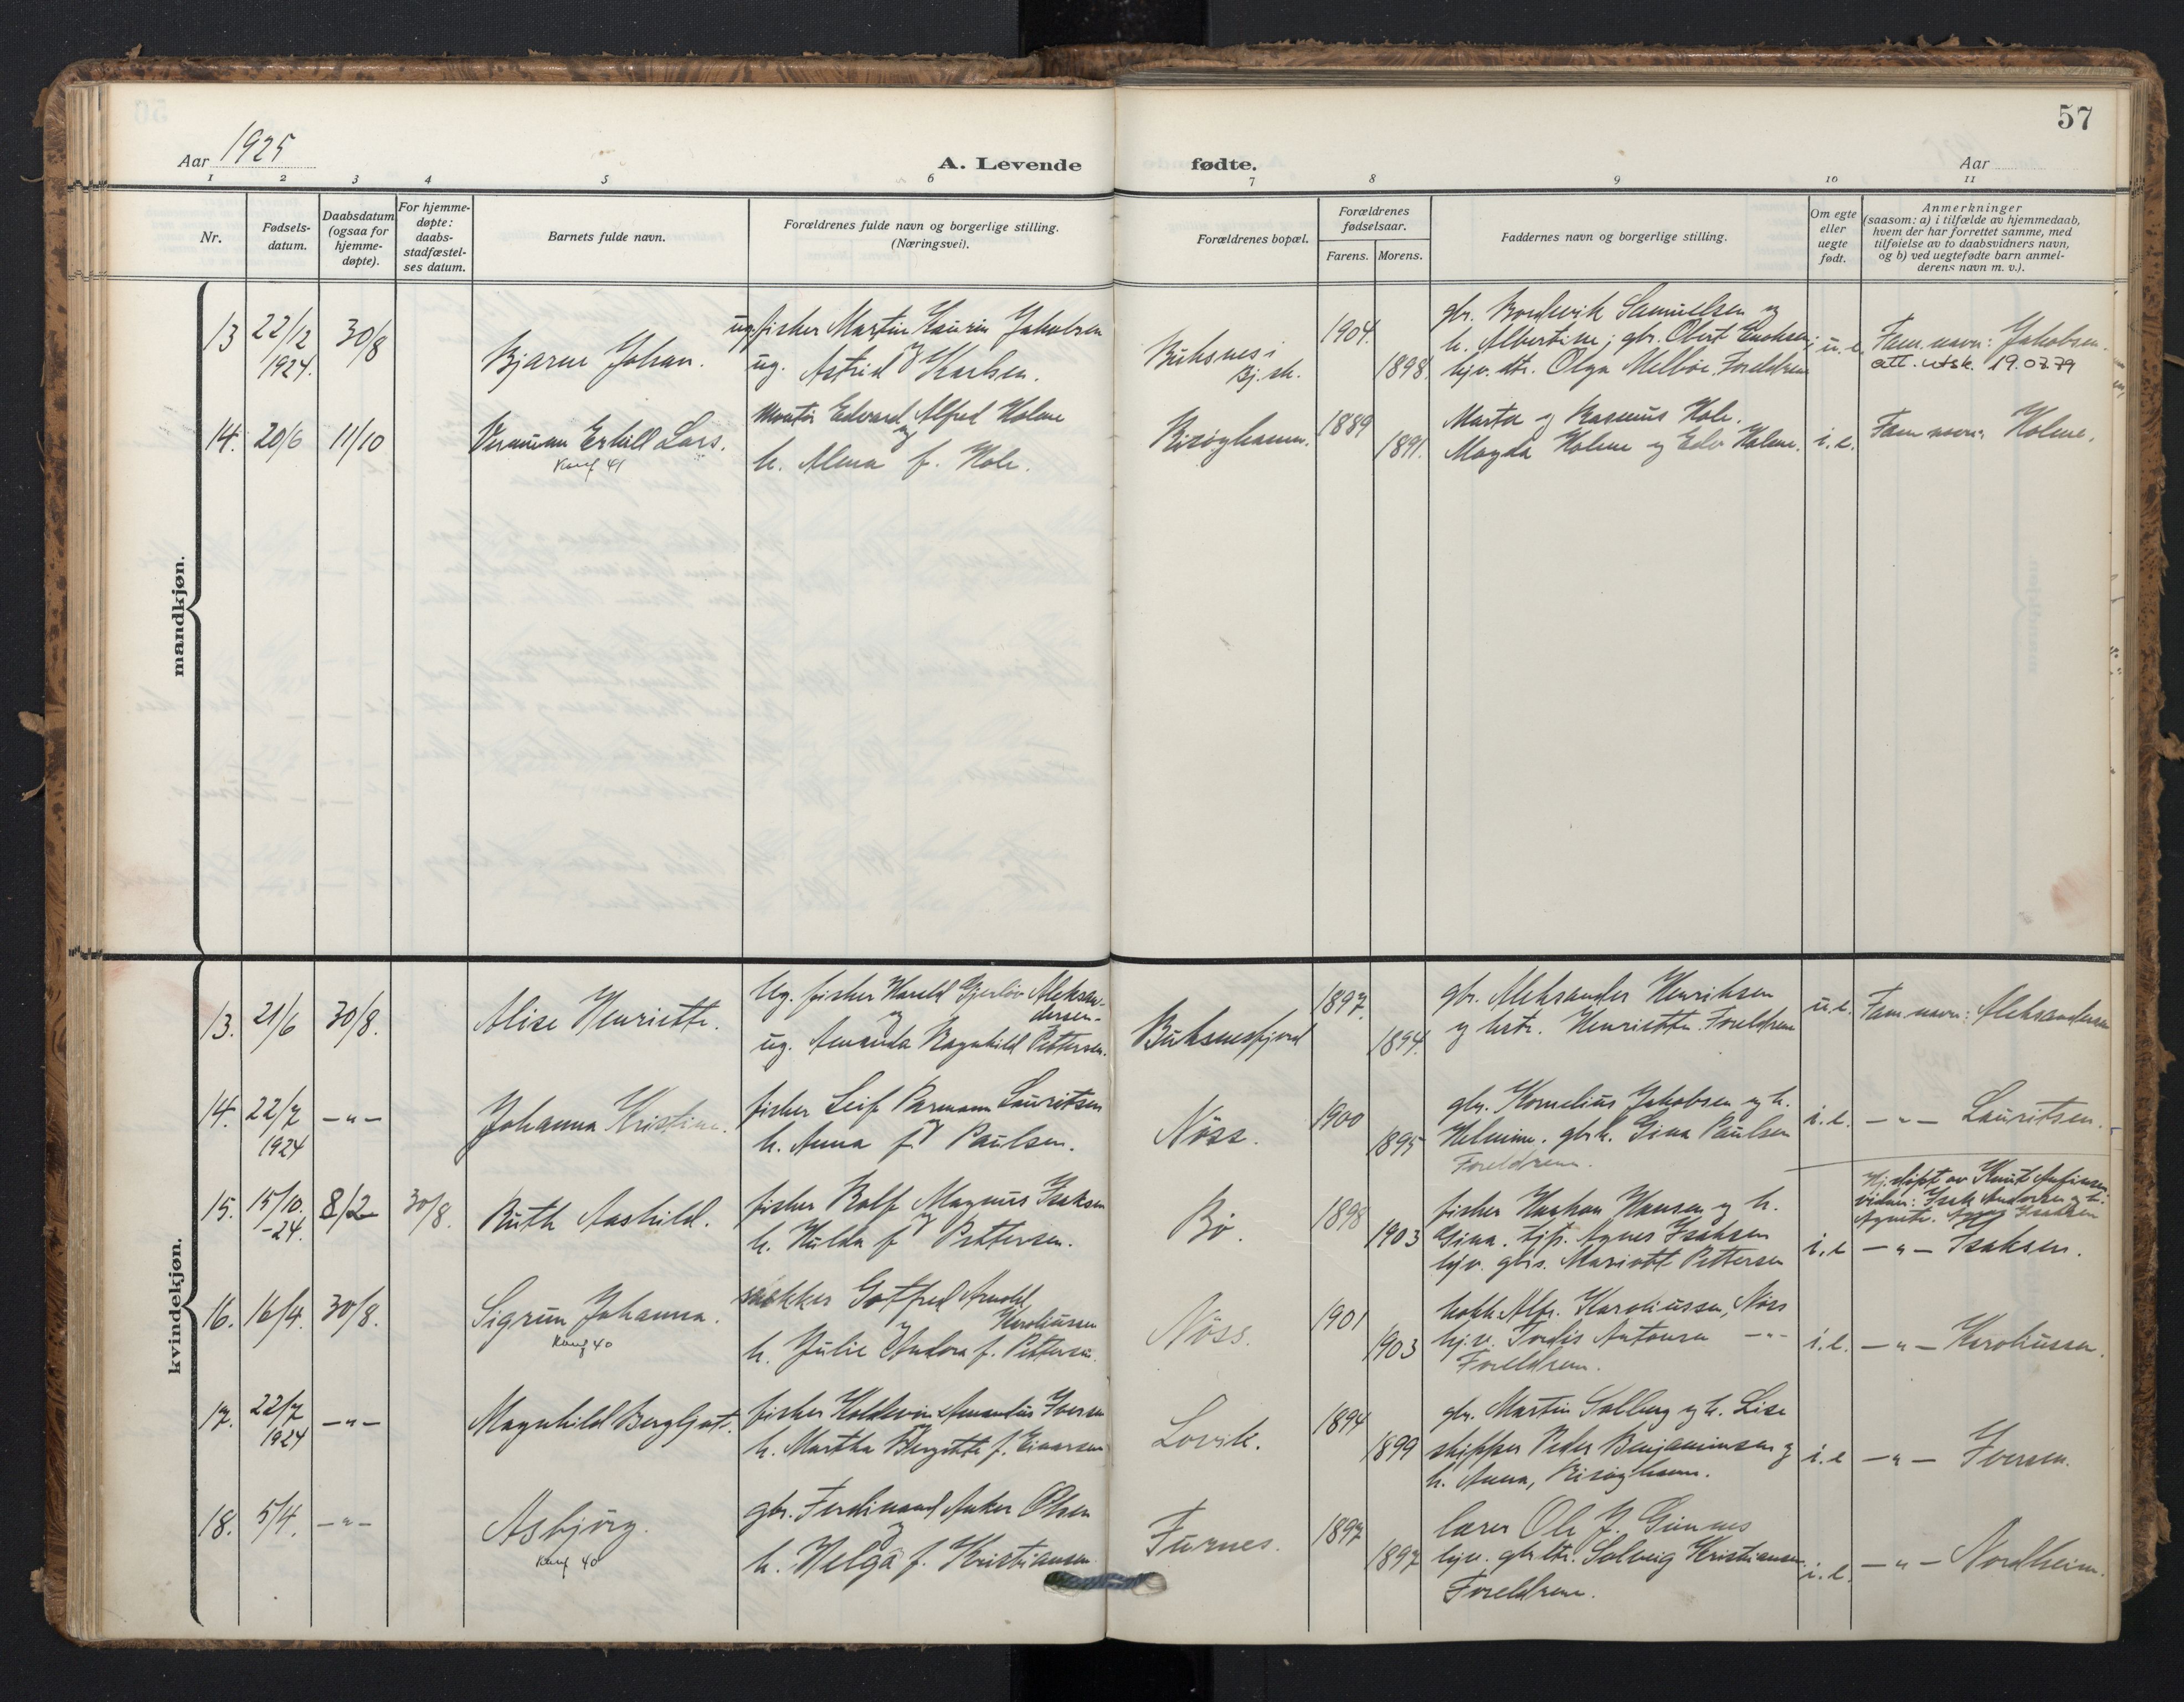 57
Aar 1925
A. Levende fødte.
Aar
1 2 3 4 5 6 7 8 9 10 11
Nr.
Fødsels-
datum.
Daabsdatum
(ogsaa for
hjemme-
døpte).
For hjemme-
døpte:
daabs-
stadfæstel-
ses datum.
Barnets fulde navn.
Forældrenes fulde navn og borgerlige stilling.
(Næringsvei).
Forældrenes bopæl.
Forældrenes
fødselsaar.
Farens. Morens.
Faddernes navn og borgerlige stilling.
Om egte
eller
uegte
født.
Anmerkninger
(saasom: a) i tilfælde av hjemmedaab,
hvem der har forrettet samme, med
tilføielse av to daabsvidners navn,
og b) ved uegtefødte barn anmel-
derens navn m. v.).
mandkjøn.
13 22/12 1924. 30/8
Bjarne Johan.
ug. fisker Martin Kaurin Jakobsen
og
ug. Astrid Karlsen.
Buksnes i
Bj.sk.
1904. 1898.
gbr. Bordevik Samuelsen og
h. Albertine; gbr. Obert Enoksen;
hjv. dtr. Olga Melbøe. Foreldrene
u. e.
Fam. navn: Jakobsen.
att. utsk. 19.07.79
14. 20/6 11/10
Erkill Lars.
Konf 41
Montør Edvard Alfred Holme
og
h. Alma f. Hole.
Risøyhamn.
1889 1891.
Marta og Rasmus Hole.
Magda Holme og Edv Holme.
i. e.
Fam navn: Holme.
kvindekjøn.
13. 21/6 30/8.
Alise Henriette.
Ug. fisker Harald Gjerløv Aleksan-
dersen
og
ug. Amanda Ragnhild Pettersen.
Buksnesfjord
1897. 1894.
gbr. Aleksander Henriksen
og hstr. Henriette. Foreldrene
u. e.
Fam navn: Aleksandersen
14. 22/7 1924 -"-
Johanna Kristine.
fisker Leif Parmann Lauritsen
og
h. Anna f. Paulsen.
Nöss.
1900 1895
gbr. Kornelius Jakobsen og h.
Helmine. gbrk. Gina Paulsen
Foreldrene.
i. e.
-"- Lauritsen.
15. 15/10. -24. 8/2 30/8.
Ruth Aashild.
fisker Rolf Magnus Isaksen
og
h. Hulda f. Pettersen.
Bö.
1898 1903
fisker Haakon Hansen og h.
Gina. tjp. Agnes Isaksen
hjv. gbrs. Mariott Pettersen
i. e
Hj.döpt av Knut
vidner: Isak Andersen og h.
Agnete.
-"- Isaksen.
16. 16/4. 30/8.
Sigrun Johanna.
Konf 40
Gotfred Arnold
Karoliussen
og
h. Julie Andora f. Pettersen.
Nöss.
1901 1903
kokk Alfr. Karoliussen, Nöss
hj.v. Tordis Antonsen -"-
Foreldrene.
i. e.
-"- Karoliussen.
17. 22/7 1924 -"-
Magnhild Bergljot.
fisker Holdevin Amandus Iversen
og
h. Martha Bergitte f. Einarsen
Lovik.
1894 1899
gbr. Martin Solberg og h. Lise
skipper Peder Benjaminsen og
h. Anna, Risøyhamn.
i. e
-"- Iversen.
18. 5/4. -"-
Asbjörg.
Konf 40
gbr. Ferdinand Anker Olsen
og
h. Helga f. Kristiansen.
Furnes.
1897 1897
lærer Ole J. Gimnes
hjv. gbr.dtr. Solveig Kristiansen.
Foreldrene.
i. e.
-"- Nordheim.